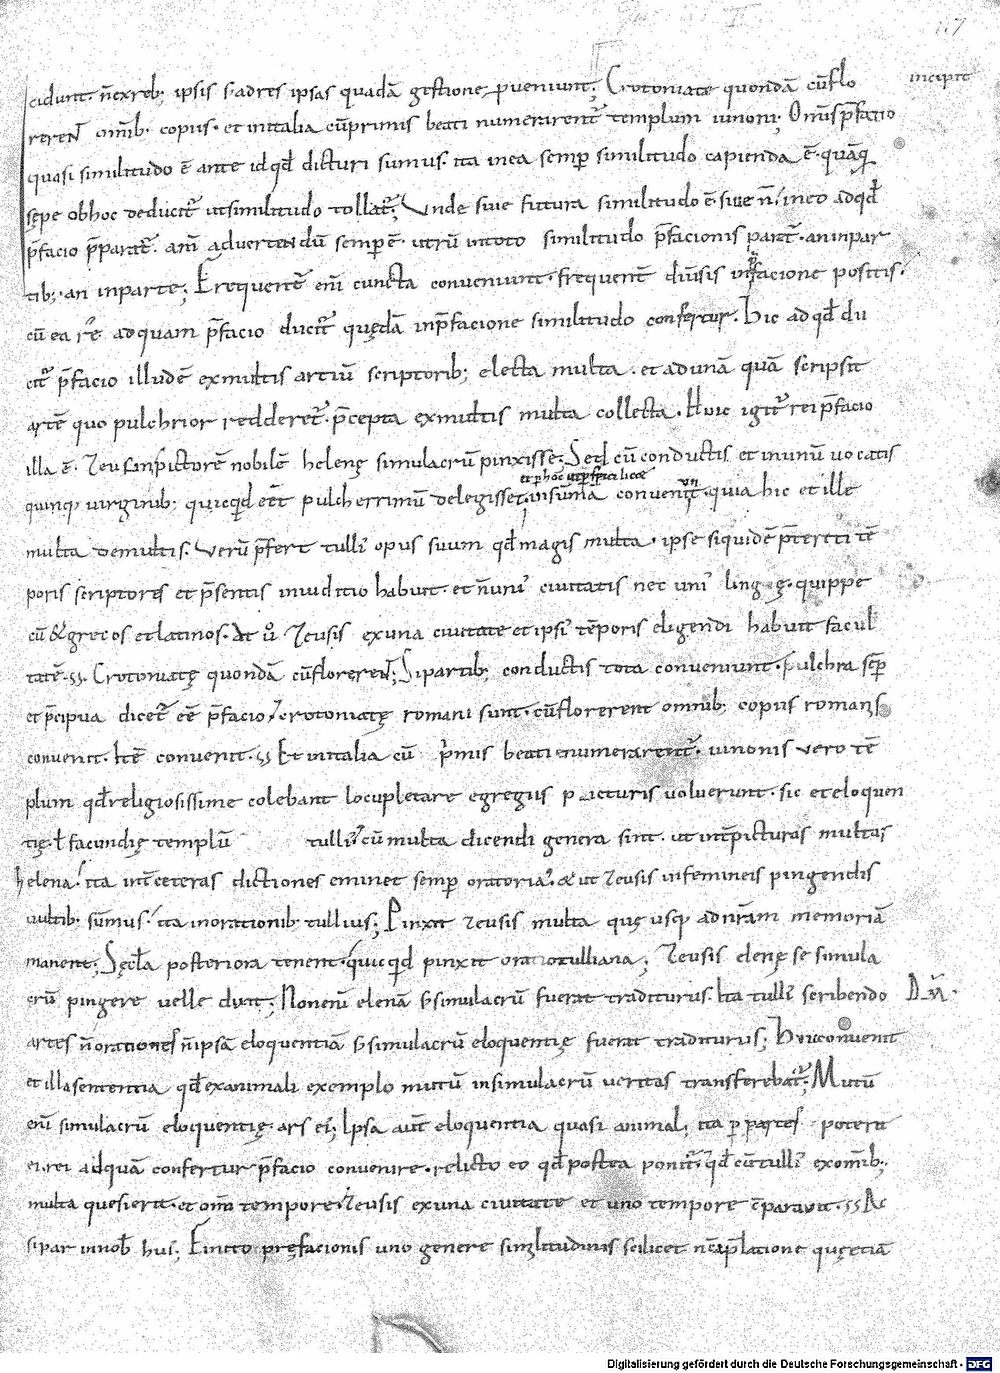 117
incipit
cidunt. n̄ exreb; ipsis s; adres ipsas quadā gestione pveniunt; Crotoniate quondā cū flo
rerent omīb. copiis. et initalia cū primis beati numerarent᷒ templum iunoni; Omīs p̄fatio
quasi similitudo ē ante id qđ dicturi sumus. ita in ea semp similitudo capienda ē. quāq̨
sępe ob hoc deducit᷒ ut similitudo tollat᷒; Unde sive futura similitudo ē sive n̄. in eo ad qđ
p̄facio p̄parat᷒. anī advertendū semp ē. utrū in toto similitudo p̄facionis parat᷒. an in par
tib;. an in parte; Frequent᷒ enī cuncta conveniunt. frequent᷒ div̄sis in p̄facione positis.
cū ea re ad quam p̄facio ducit᷒ quędā in p̄facione similitudo confertur. Hic ad qđ du
cit᷒ p̄facio illud ē ex multis artiū scriptorib; electa multa. et ad unā quā scripsit
artē quo pulchrior redderet᷒. p̄cepta ex multis multa collecta. Huic igit᷒ rei p̄facio
illa ē. Zeusin pictorē nobilē helenę simulacrū pinxisse; Sed cū conductis et in unū vocatis
et p hoc
quinq; virginib; quicqđ eēt pulcherrimū delegisset, in sūma convenit. quia hic et ille
multa de multis. Verū p̄fert tulli᷒ opus suum qđ magis multa. ipse siquidē p̄teriti tē
poris scriptores et p̄sentis in iudicio habuit. et n̄ uni᷒ civitatis nec uni᷒ linguę. quippe
cū & grecos et latinos. At v̊ Zeusis ex una civitate et ipsi᷒ tēporis eligendi habuit facul
tatē. ss. Crotoniatę quondā cū florerent; Si partib; conductis tota conveniunt. pulchra semp
et p̄cipua dicet᷒ eē p̄facio. crotoniatę romani sunt. cū florerent omīb; copiis romanis
convenit. Itē convenit. ss Et in italia cū primis beati numerarent᷒. iunonis vero tē
plum qđ religiosissime colebant locupletare egregiis picturis voluerunt. sic et eloquen
tię. ł facundię templū tulli᷒. cū multa dicendi genera sint. ut int̄ picturas multas
helena. ita int̄ ceteras dictiones eminet semp oratoria. & ut Zeusis in femineis pingendis
vultib; sūmus. ita in orationib; tullius; Pinxit Zeusis multa quę usq; ad nr̄am memoriā
manent; Sęcła posteriora tenent. quicqid pinxit oratio tulliana; Zeusis elenę se simula
crū pingere velle dixit; Non enī elenā s; simulacrū fuerat traditurus. Ita tulli᷒ scribendo
artes n̄ orationes n̄ ipsā eloquentiā s; simulacrū eloquentię fuerat traditurus; Huic convenit
et illa sententia qđ ex animali exemplo mutū in simulacrū veritas transferebat᷒; Mutū
enī simulacrū eloquentię. ars ei᷒; Ipsa aut̄ eloquentia quasi animal; ita p partes poterit
ei rei ad quā confertur p̄facio convenire. relicto eo qđ postea ponit᷒. qđ cū tulli᷒ ex omīb;
multa quesierit. et omī tempore. Zeusis ex una civitate et uno tempore cōparavit. ss Ac
si par in nob hus; Finito pręfacionis uno genere similitudinis scilicet n̄ cōparatione quę etiā
Digitalisierung gefördert durch die Deutsche Forschungsgemeinschaft - DFG